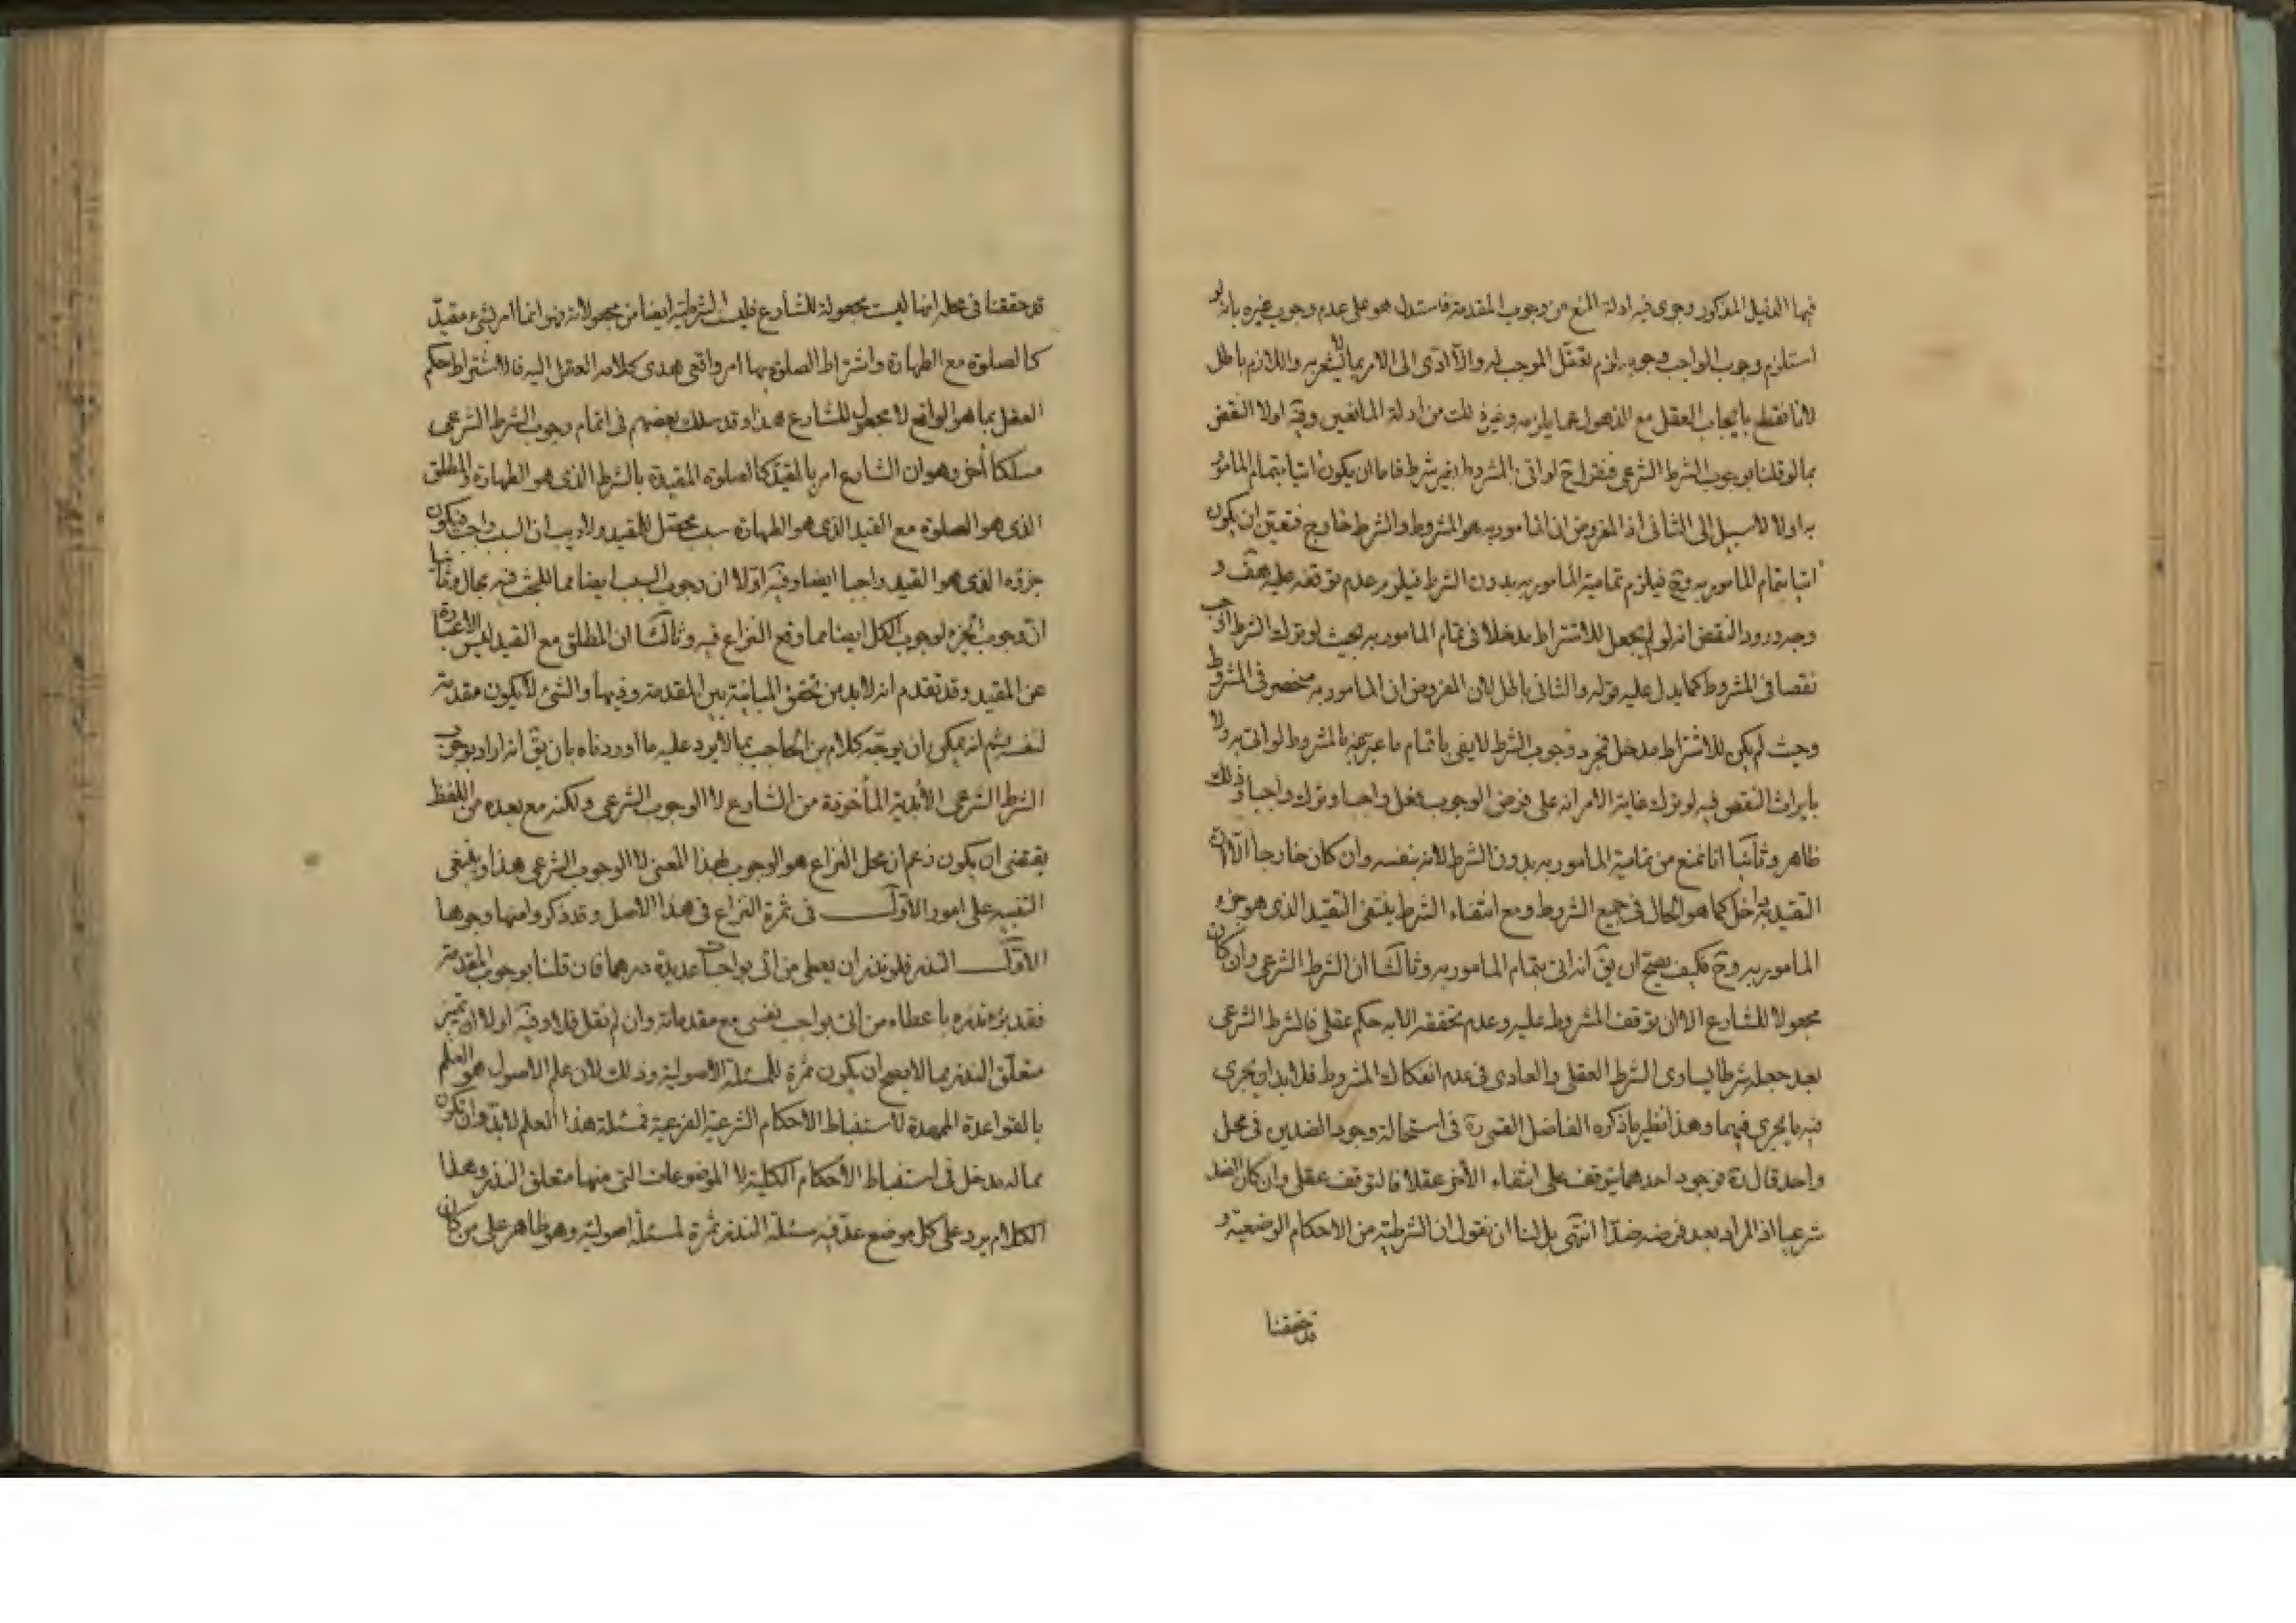 فيها الدليل المذكور وجرى فيه ادلة المنع من وجوب المقدمة فاستدل هو على عدم وجوب غيره بانه لو
استلزم وجوب الواجب وجوبه لزم تعقل الموجب له والا ادى الى الامر بما لا يشعر به واللازم باطل
لانا نقطع بايجاب العقل مع الذهول عما يلزمه وغير ذلك من ادلة المانعين وفيه اولا النقض
بما لو قلنا بوجوب الشرط الشرعى فنقول ح لو اتى بالمشروط بغير شرط فاما ان يكون اتيا بتمام المامور
به او لا لا سبيل الى الثانى اذ المفروض ان المامور به هو المشروط والشرط خارج فتعين ان يكون
اتيا بتمام المامور به وح فيلزم تمامية المامور به بدون الشرط فيلزم عدم توقفه عليه هف و
وجه ورود النقض انه لو لم يجعل للاشتراط مدخلا فى تمام المامور به بحيث لو ترك الشرط اوجب
نقصا فى المشروط كما يدل عليه قوله والثانى باطل لان المفروض ان المامور به منحصر فى المشروط
وحيث لم يكن للاشتراط مدخل فمجرد وجوب الشرط لا يفى باتمام ما عبر عنه بالمشروط لو اتى به ولا
بايراث النقص فيه لو ترك غاية الامر انه على فرض الوجوب فعل واجبا وترك واجبا وذلك
ظاهر وثانيا انا نمنع من تمامية المامور به بدون الشرط لانه بنفسه وان كان خارجا الا ان
التقيد به داخل كما هو الحال فى جميع الشروط ومع انتفاء الشرط ينتفى التقيد الذى هو جزء
المامور به وح فكيف يصح ان يق انه اتى بتمام المامور به وثالثا ان الشرط الشرعى وان كان
مجعولا للشارع الا ان توقف المشروط عليه وعدم تحققه الا به حكم عقلى فالشرط الشرعى
بعد جعله شرطا يساوى الشرط العقلى والعادى فى عدم انفكاك المشروط فلا بد ان يجرى
فيه ما يجرى فيهما وهذا نظير ما ذكره الفاضل القمى ره فى استحالة وجود الضدين فى محل
واحد قال ره فوجود احدهما يتوقف على انتفاء الاخر عقلا فالتوقف عقلى وان كان الضد
شرعيا اذ المراد بعد فرضه ضدا انتهى بل لنا ان نقول ان الشرطية من الاحكام الوضعية و
قد حققنا
قد حققنا فى محله انها ليست مجعولة للشارع فليست الشرطية ايضا من مجعولاته وانما امر بشئ مقيد
كالصلوة مع الطهارة واشتراط الصلوة بها امر واقعى هدى كلامه العقل اليه فالاشتراط حكم
العقل بما هو الواقع لا مجعول للشارع هذا وقد سلك بعضهم فى اتمام وجوب الشرط الشرعى
مسلكا اخر وهو ان الشارع امر بالمقيد كالصلوة المقيدة بالشرط الذى هو الطهارة والمطلق
الذى هو الصلوة مع القيد الذى هو الطهارة سبب محصل للمقيد ولا ريب ان السبب واجب فيكون
جزؤه الذى هو القيد واجبا ايضا وفيه اولا ان وجوب السبب ايضا مما للبحث فيه مجال وثانيا
ان وجوب الجزء لوجوب الكل ايضا مما وقع النزاع فيه وثالثا ان المطلق مع القيد ليس الا عبارة
عن المقيد وقد تقدم انه لا بد من تحقق المباينة بين المقدمة وذيها والشئ لا يكون مقدمة
لنفسه ثم انه يمكن ان يوجه كلام بن الحاجب بما لا يرد عليه ما اوردناه بان يق انه اراد بوجوب
الشرط الشرعى الابدية الماخوذة من الشارع لا الوجوب الشرعى ولكنه مع بعده من اللفظ
يقتضى ان يكون زعم ان محل النزاع هو الوجوب بهذا المعنى لا الوجوب الشرعى هذا وينبغى
التنبيه على امور الاول فى ثمرة النزاع فى هذا الاصل وقد ذكروا منها وجوها
الاول النذر فلو نذر ان يعطى من اتى بواجبات عديدة درهما فان قلنا بوجوب المقدمة
فقد برء نذره باعطاء من اتى بواجب نفسى مع مقدماته وان لم نقل فلا وفيه اولا ان تميز
متعلق النذر مما لا يصح ان يكون ثمرة للمسئلة الاصولية وذلك لان علم الاصول هو العلم
بالقواعد الممهدة لاستنباط الاحكام الشرعية الفرعية فمسئلة هذا العلم لا بد وان تكون
مما له مدخل فى استنباط الاحكام الكلية لا الموضوعات التى منها متعلق النذر وهذا
الكلام يرد على كل موضع عد فيه مسئلة النذر ثمرة لمسئلة اصولية وهو ظاهر على من كان